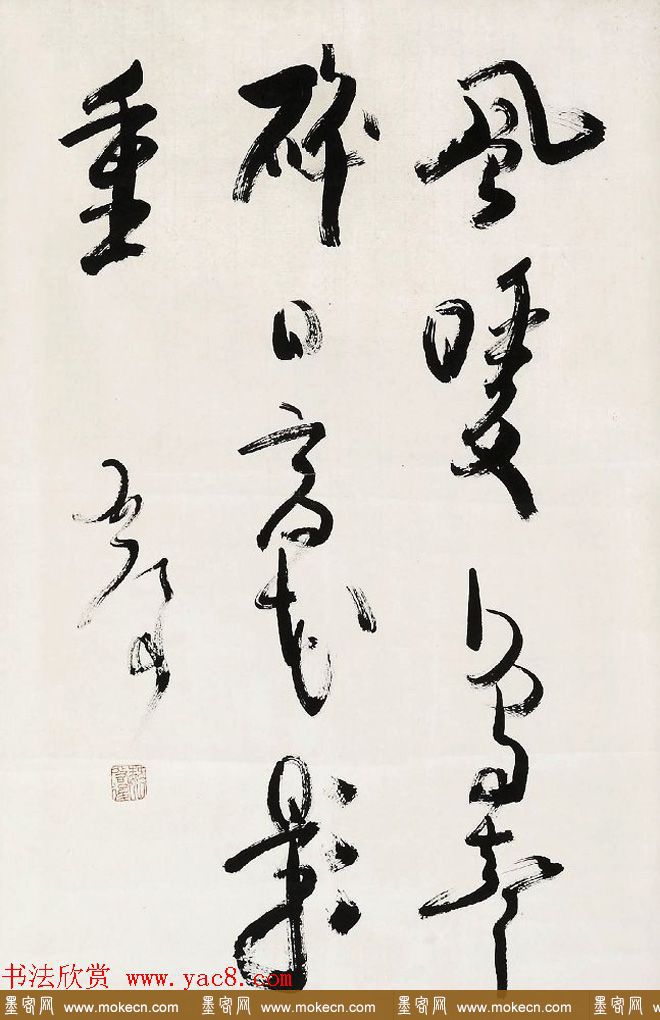 风暖鸟声
碎日高花影
重
书法欣赏 www.yac8.com
墨客网 www.mokecn.com 墨客网 www.mokecn.com 墨客网 www.mokecn.com 墨客网 www